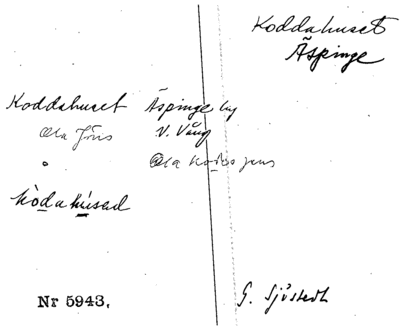 Koddahuset
Äspinge
Koddahuset Äspinge by
Ola Jöns V. Vång
Ola Jens
kòdahúsed
Nr 5943.
G. Sjöstedt